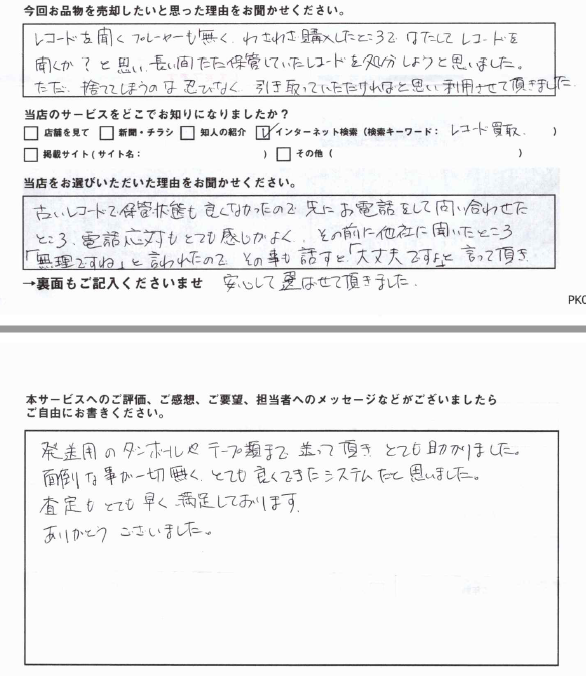 今回お品物を売却したいと思った理由をお聞かせください。
レコードを聞くプレーヤーも無く、わざわざ購入したところで はたしてレコードを
聞くか?と思い、長い間ただ保管していたレコードを処分しようと思いました。
ただ、捨ててしまうのは忍びなく、引き取っていただければと思い利用させて頂きました。
当店のサービスをどこでお知りになりましたか?
□ 店舗を見て □ 新聞・チラシ □ 知人の紹介 ☑ インターネット検索(検索キーワード: レコード買取 )
□ 掲載サイト(サイト名: ) □ その他( )
当店をお選びいただいた理由をお聞かせください。
古いレコードで保管状態も良くなかったので先にお電話をして問い合わせた
ところ、電話応対もとても感じがよく、その前に他社に聞いたところ
「無理ですね」と言われたので その事も話すと「大丈夫ですよ」と言って頂き
→裏面もご記入くださいませ 安心して選ばせて頂きました。
PK0
本サービスへのご評価、ご感想、ご要望、担当者へのメッセージなどがございましたら
ご自由にお書きください。
発送用のダンボールやテープ類まで送って頂き とても助かりました。
面倒な事が一切無く、とても良くできたシステムだと思いました。
査定もとても早く 満足しております。
ありがとうございました。